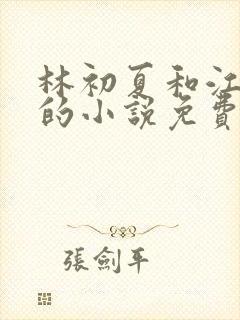 林初夏和江
的小說免費
張劍平